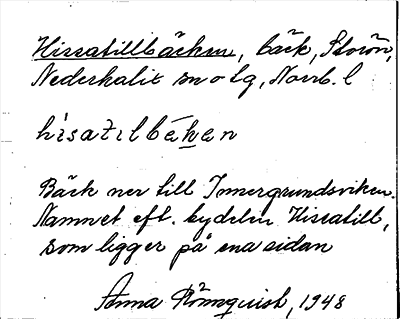 Hissatillbäcken, bäck, Storön,
Nederkalix sn o lg, Norrb. l
hisatilbäkan
Bäck ner till Innergrundsviken.
Namnet eft. bydelen Hissatill,
som ligger på ena sidan
Anna Rönnquist, 1948